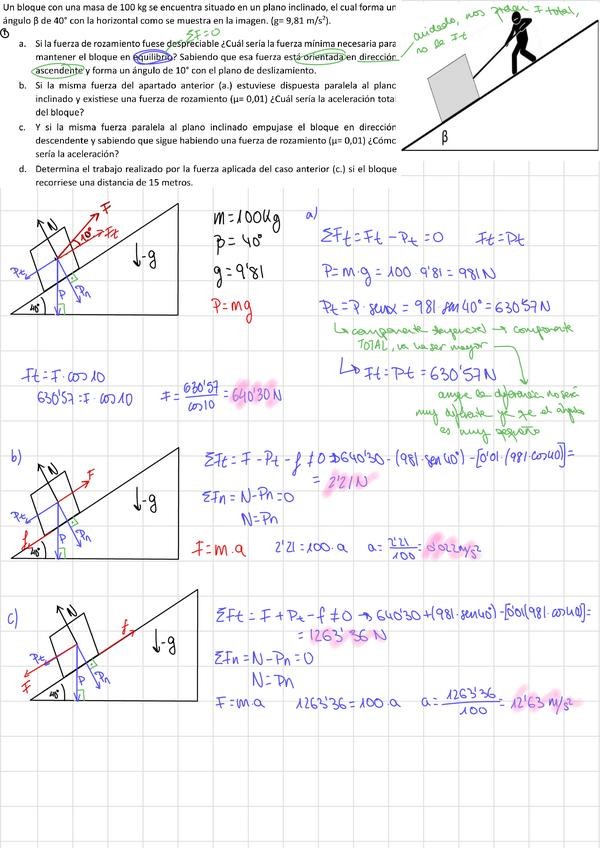 Un bloque con una masa de 100 kg se encuentra situado en un plano inclinado, el cual forma un
ángulo β de 40° con la horizontal como se muestra en la imagen. (g= 9,81 m/s²).
①
ΣF=0
cuidado, nos piden F total,
no la Ft
a. Si la fuerza de rozamiento fuese despreciable ¿Cuál sería la fuerza mínima necesaria para
mantener el bloque en equilibrio? Sabiendo que esa fuerza está orientada en dirección
ascendente y forma un ángulo de 10° con el plano de deslizamiento.
b. Si la misma fuerza del apartado anterior (a.) estuviese dispuesta paralela al plano
inclinado y existiese una fuerza de rozamiento (μ= 0,01) ¿Cuál sería la aceleración total
del bloque?
c. Y si la misma fuerza paralela al plano inclinado empujase el bloque en dirección
descendente y sabiendo que sigue habiendo una fuerza de rozamiento (μ= 0,01) ¿Cómo
sería la aceleración?
d. Determina el trabajo realizado por la fuerza aplicada del caso anterior (c.) si el bloque
recorriese una distancia de 15 metros.
β
N
F
10°
Ft
Pt
P
Pn
40°
↓-g
m=100Kg
β=40°
g=9'81
P=mg
a)
ΣFt=Ft-Pt=0 Ft=Pt
P=m·g=100·9'81=981N
Pt=P·senα=981·sen40°=630'57N
↳componente tangencial → componente
TOTAL, va a ser mayor
↳ Ft=Pt=630'57N
aunque la diferencia no será
muy diferente ya que el ángulo
es muy pequeño
Ft=F·cos10
630'57=F·cos10 F=630'57/cos10=640'30N
b)
N
F
Pt
f
P
Pn
40°
↓-g
ΣFt=F-Pt-f≠0→640'30-(981·sen40°)-[0'01·(981·cos40)]=
=2'21N
ΣFn=N-Pn=0
N=Pn
F=m.a 2'21=100·a a=2'21/100=0'022m/s²
c)
N
f
Pt
F
P
Pn
40°
↓-g
ΣFt=F+Pt-f≠0→640'30+(981·sen40°)-[0'01(981·cos40)]=
=1263'36 N
ΣFn=N-Pn=0
N=Pn
F=m.a 1263'36=100·a a=1263'36/100=12'63 m/s²